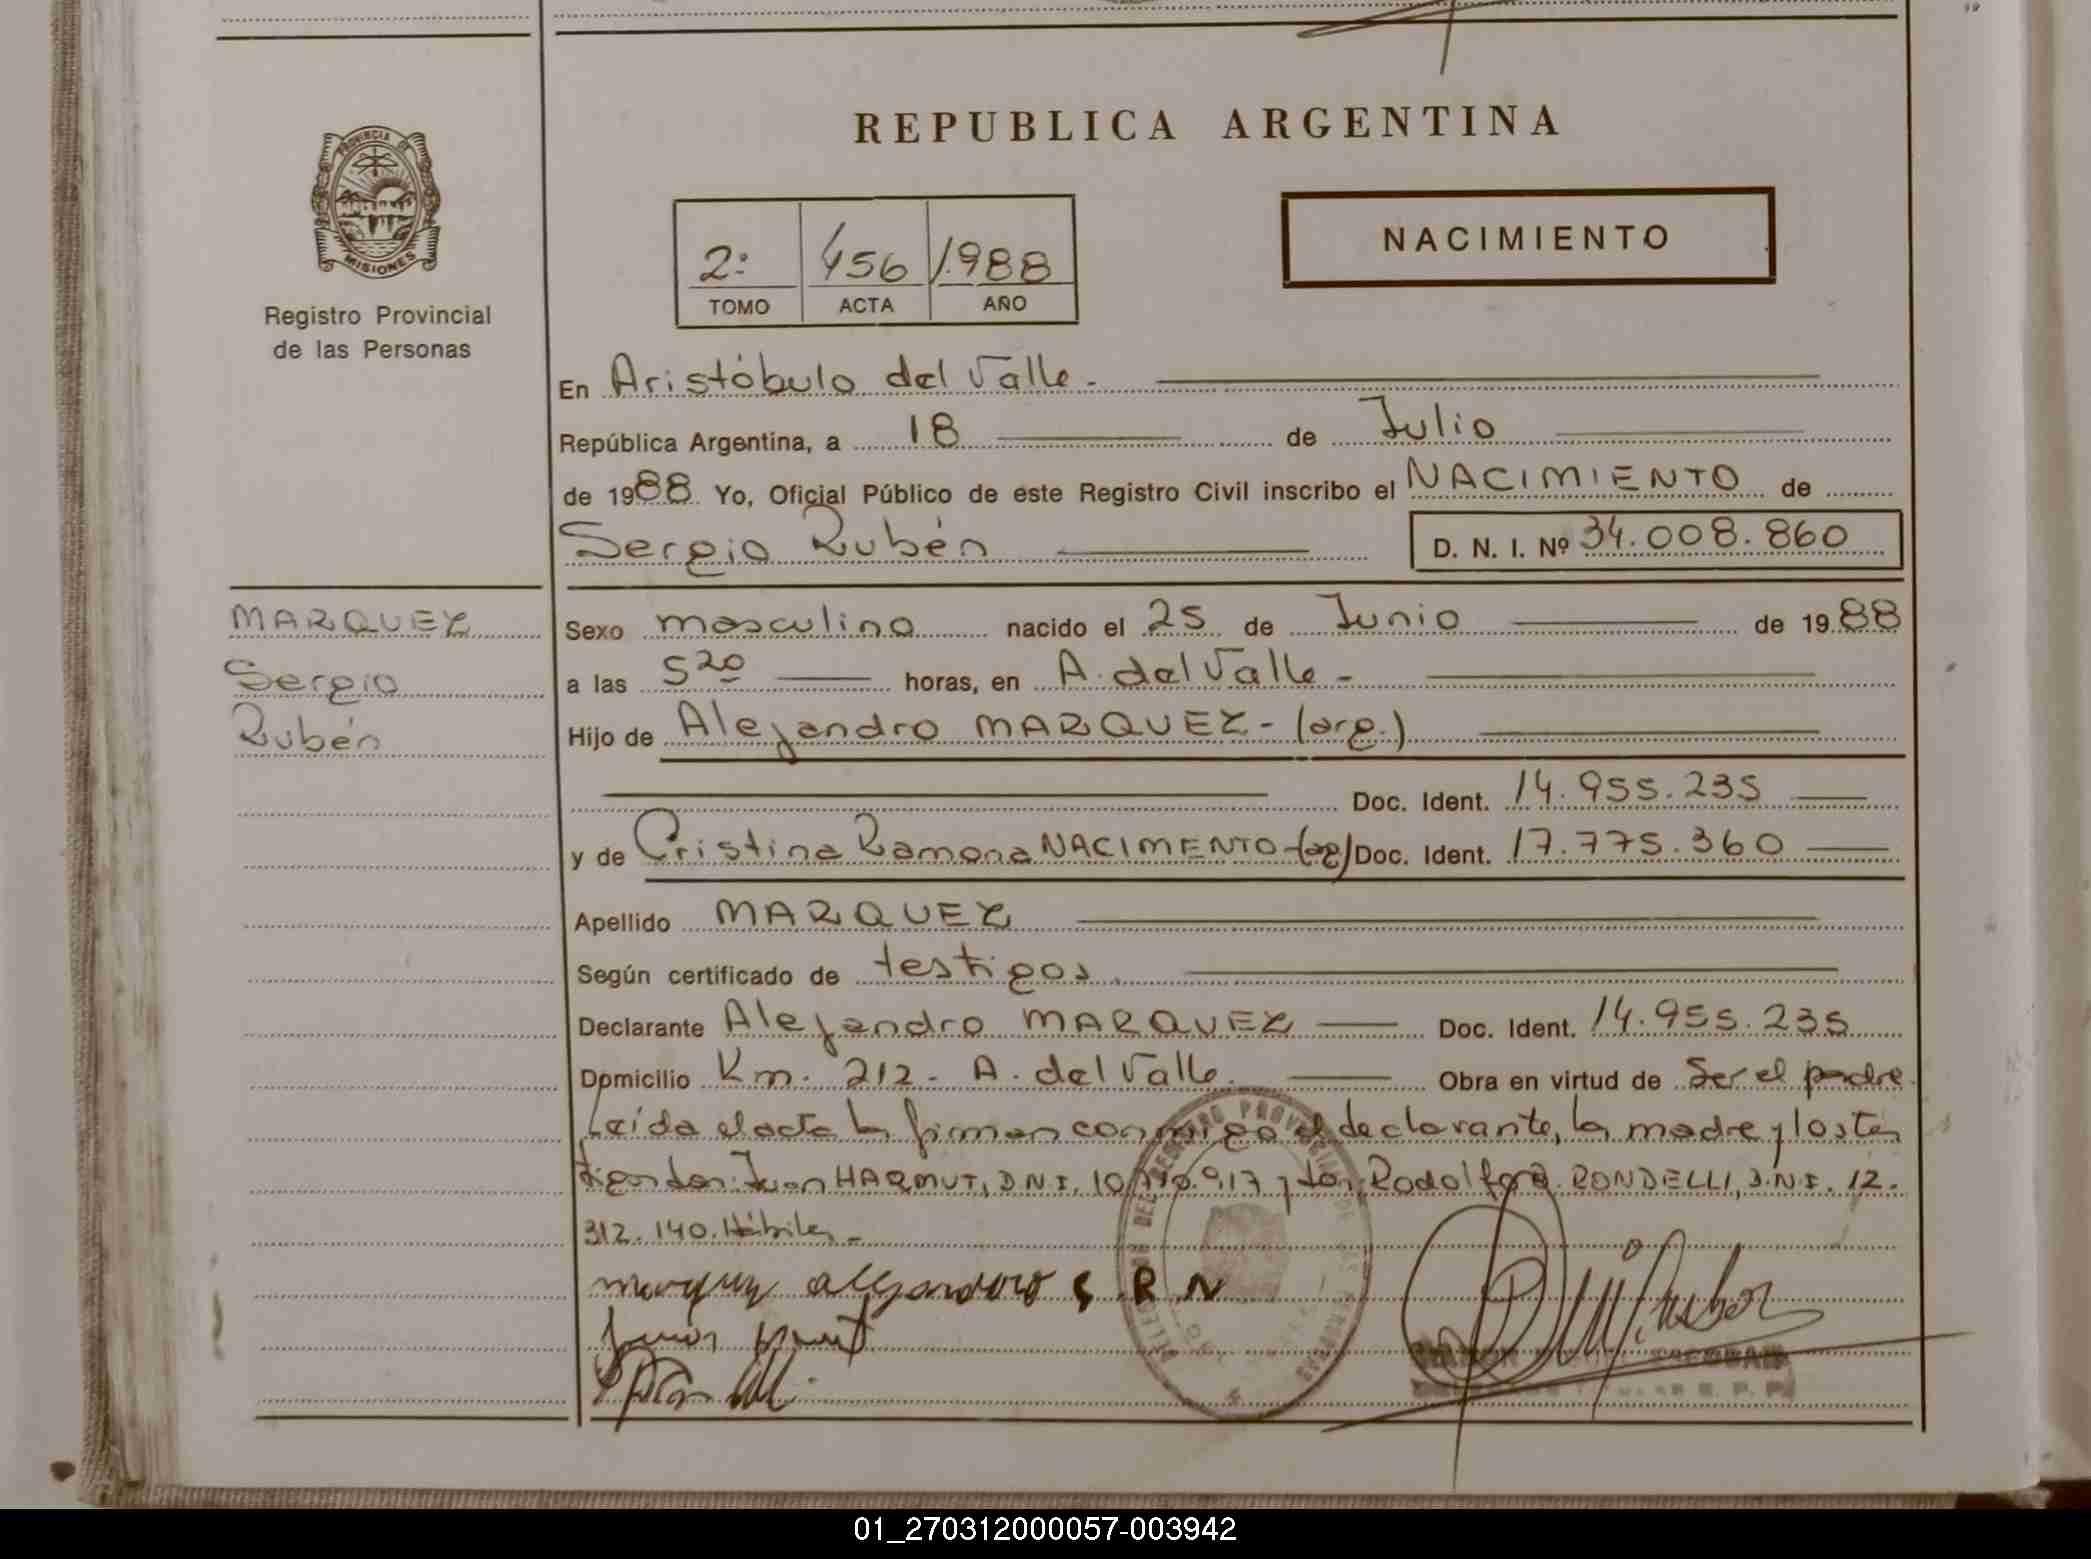 REPUBLICA ARGENTINA
PROVINCIA DE
MISIONES
Registro Provincial
de las Personas
NACIMIENTO
2º 456 1988
TOMO ACTA AÑO
En Aristóbulo del Valle.
República Argentina, a 18 de Julio
de 1988 Yo, Oficial Público de este Registro Civil inscribo el NACIMIENTO de
Sergio Rubén D. N. I. Nº 34.008.860
MARQUEZ
Sergio
Rubén
Sexo masculino nacido el 25 de Junio de 1988
a las 5 20 horas, en A. del Valle -
Hijo de Alejandro MARQUEZ - (arg.)
Doc. Ident. 14.955.235
y de Cristina Ramona NACIMENTO (arg) Doc. Ident. 17.775.360
Apellido MARQUEZ
Según certificado de testigos
Declarante Alejandro MARQUEZ Doc. Ident. 14.955.235
Domicilio Km. 212 - A. del Valle. Obra en virtud de Ser el padre.
Leída el acta la firman conmigo el declarante, la madre y los tes
tigos don: Juan HARMUT, D.N.I. 10. y don: Rodolfo RONDELLI, D.N.I. 12.
312.140. Hábiles -
marquez alejandro C R N
01_270312000057-003942